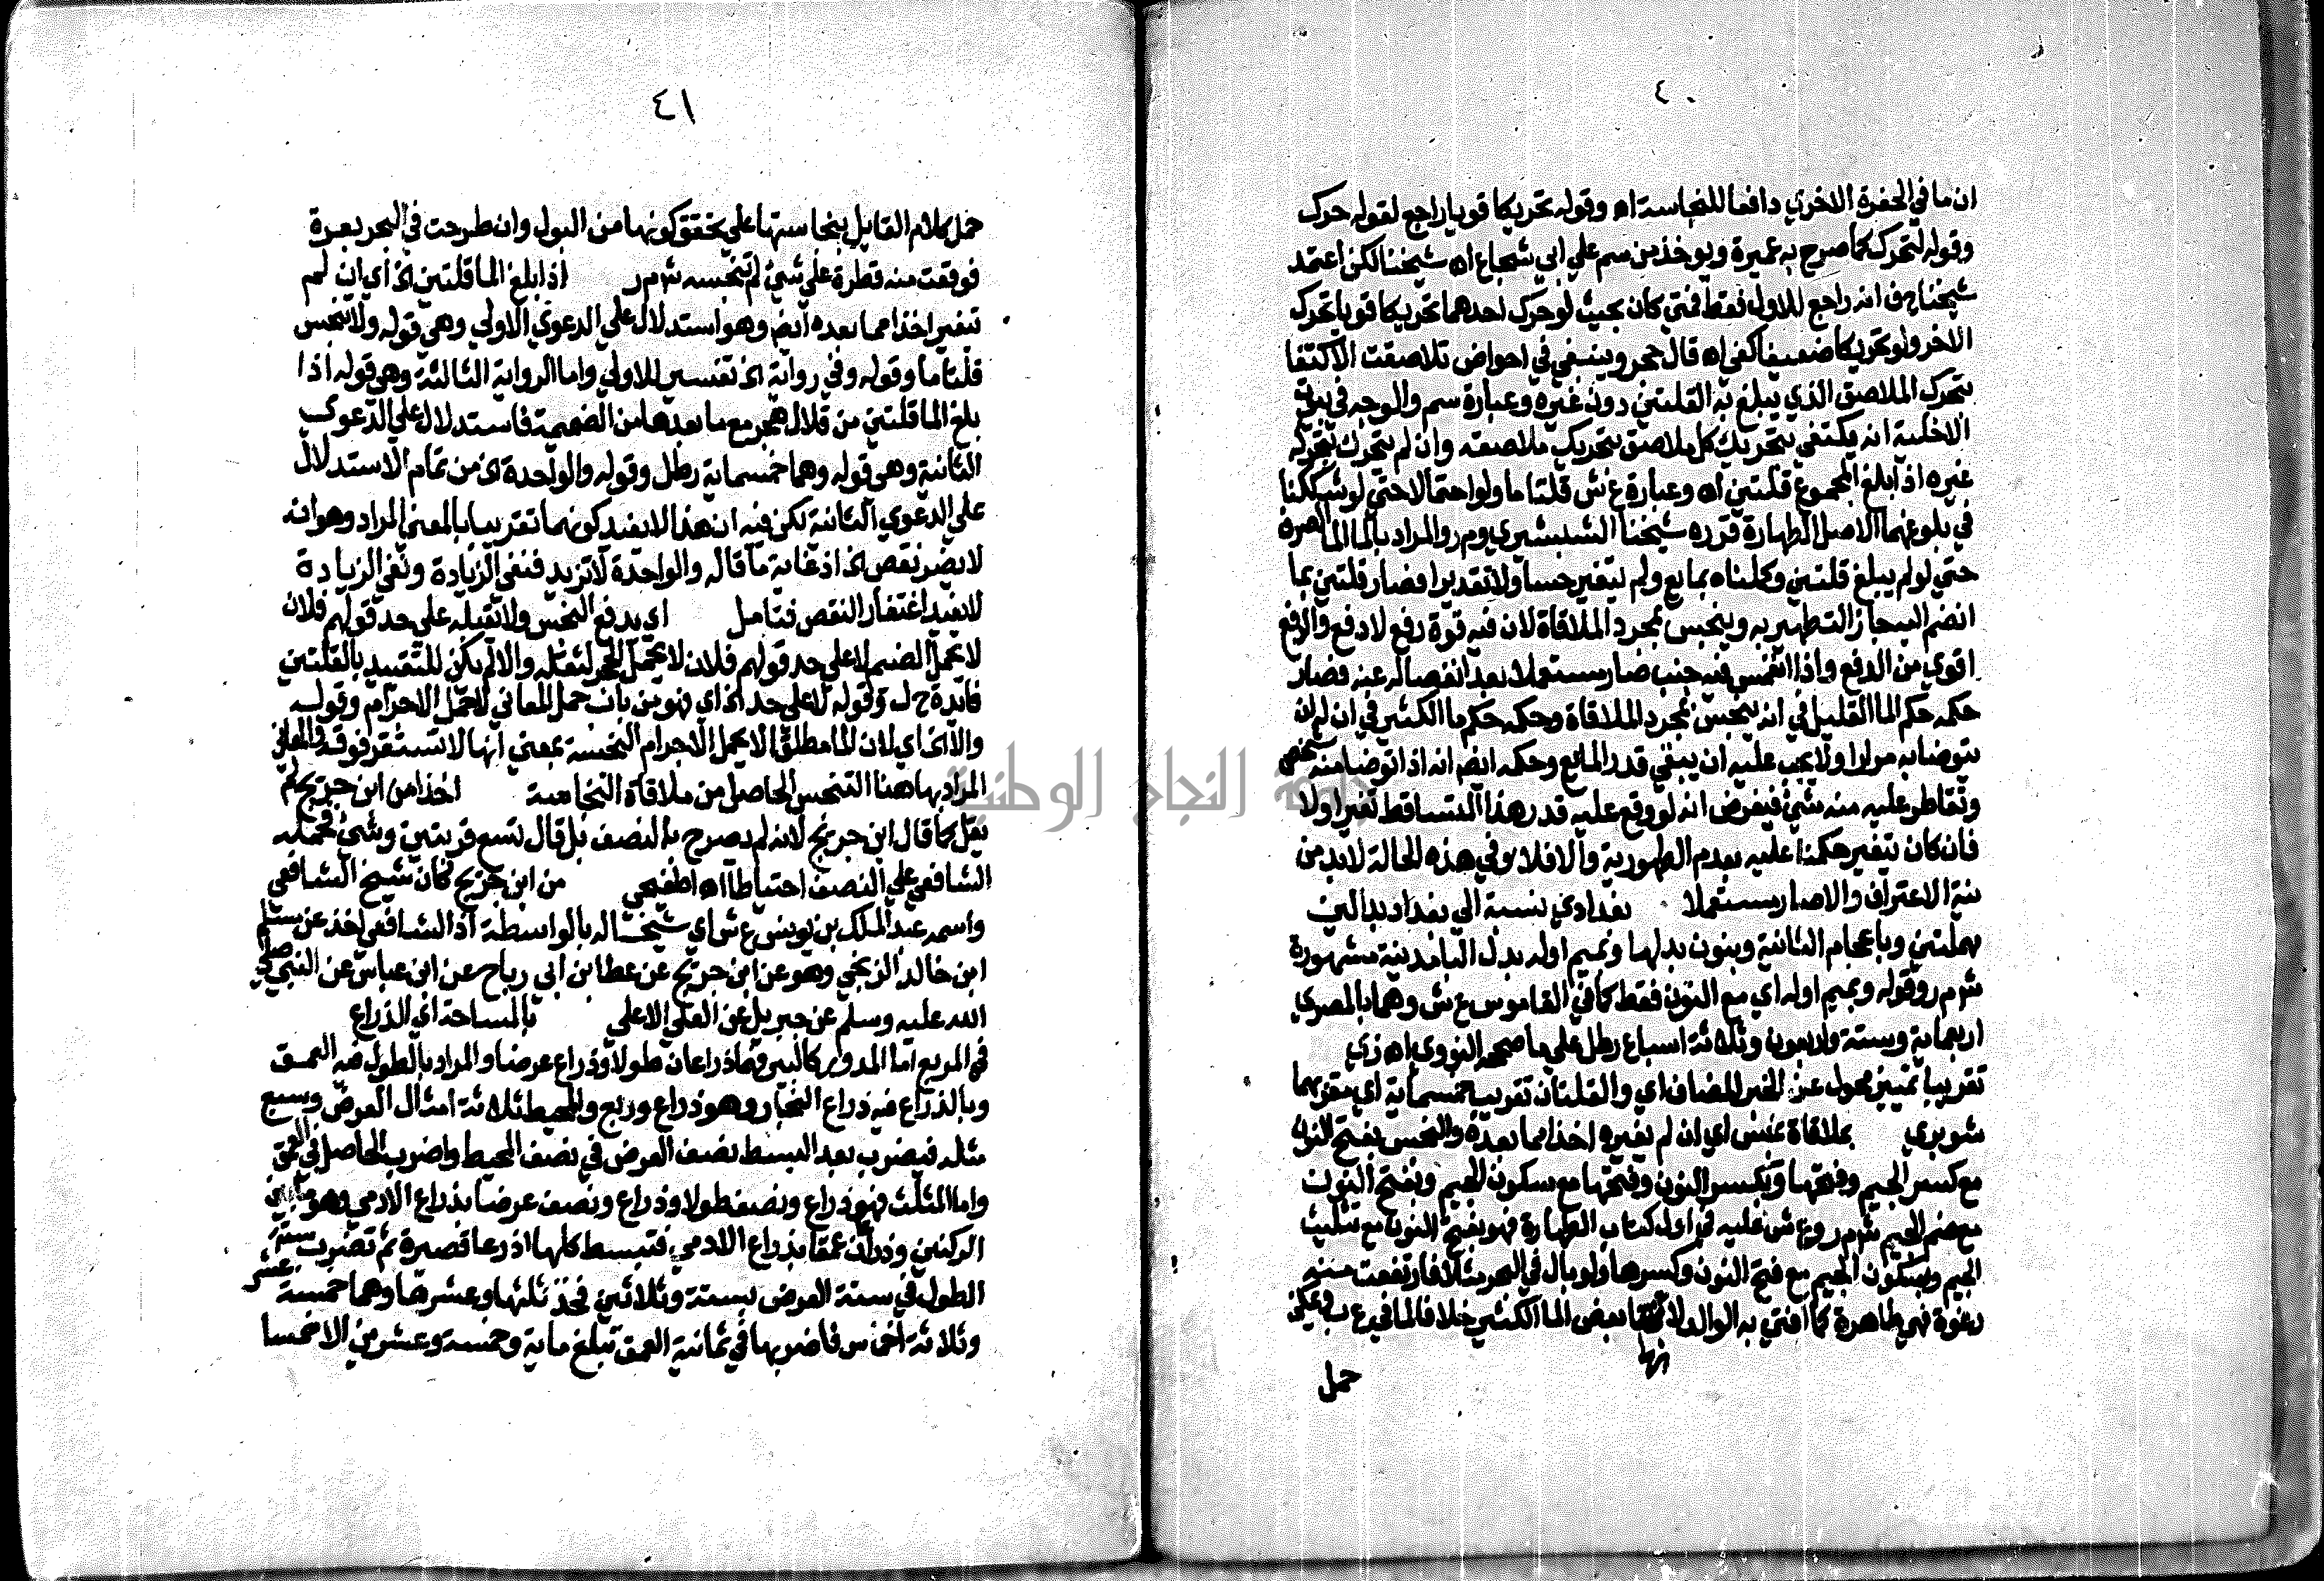 ٤٠
ان ما في الحفرة الاخري دافعا للنجاسة اه وقوله تحريكا قويا راجع لقوله حرك
وقوله لتحرك كما صرح به عميرة ويوخذ من سم علي ابي شجاع اه شيخنا لكن اعتمد
شيخنا ح ف انه راجع للاول فقط فمتي كان بحيث لو حرك احدهما تحريكا قويا تحرك
الاخر ولو تحريكا ضعيفا كفي اه قال حجر وينبغي في احواض تلاصقت الاكتفا
بتحرك الملاصق الذي يبلغ به القلتين دون غيره وعبارة سم والوجه في بيوت
الاخلية انه يكتفي بتحريك كل ملاصق بتحريك ملاصقه وان لم يتحرك بتحركه
غيره اذا بلغ المجموع قلتين اه وعبارة ع ش قلتا ما ولو احتمالا حتي لو شككنا
في بلوغهما الاصل الطهارة قرره شيخنا الشبشيري وم ر والمراد بالما الما الصرف
حتي لو لم يبلغ قلتين وكملناه بمايع ولم يتغير حسا ولا تقديرا فصار قلتين بما
انضم اليه جاز التطهير به وينجس بمجرد الملاقاة لان فيه قوة رفع لا دفع والرفع
اقوي من الدفع واذا انغمس فيه جنب صار مستعملا بعد انفصاله عنه فصار
حكمه حكم الما القليل في انه ينجس بمجرد الملاقاة وحكمه حكم ما الكثير في ان له ان
يتوضا به مرارا ولا يجب عليه ان يبقي قدر المايع وحكمه ايضا انه اذا توضا منه شخص
وتقاطر عليه منه شئ فيفرض انه لو وقع عليه قدر هذا المتساقط تغير اولا
فان كان يتغير حكمنا عليه بعدم الطهورية والا فلا وفي هذه الحالة لا بد من
نية الاعتراف والا صار مستعملا بغدادي نسبة الي بغداد بدالين
مهملتين وباعجام الثانية وبنون بدلها وبميم اوله بدل البا مدينة مشهورة
ش م ر وقوله وبميم اوله اي مع النون فقط كما في القاموس ع ش وهما بالمصري
اربعماية وستة واربعون وثلاثة اسباع رطل علي ما صححه النووي اه زي
تقريبا تمييز محول عن الخبر المضاف اي والقلتان تقريب خمسماية اي مقربهما
شوبري بملاقاة نجس اي ان لم يغيره اخذا مما بعده والنجس بفتح النون
مع كسر الجيم وفتحها وبكسر النون وفتحها مع سكون الجيم وبفتح النون
مع ضم الجيم ش م ر وع ش عليه في اول كتاب الطهارة فهو بفتح النون مع تثليث
الجيم وبسكون الجيم مع فتح النون وكسرها ولو بال في البحر مثلا فارتفعت منه
رغوة فهي طاهرة كما افتي به الوالد لانها بعض الما الكثير خلافا لما في ع ب ويمكن
انها
حمل
٤١
حمل كلام القايل بنجاستها علي تحقق كونها من البول وان طرحت في البحر بعرة
فوقعت منه قطرة علي شئ لم تنجسه ش م ر اذا بلغ الما قلتين الخ اي ان لم
تتغير اخذا مما بعده ايضا وهو استدلال علي الدعوي الاولي وهي قوله ولا تنجس
قلتا ما وقوله وفي رواية الخ تفسير للاولي واما الرواية الثالثة وهي قوله اذا
بلغ الما قلتين من قلال هجر مع ما بعدها من الضميمة فاستدلال علي الدعوي
الثانية وهي قوله وهما خمسماية رطل وقوله والواحدة الخ من تمام الاستدلال
علي الدعوي الثانية لكن فيه ان هذا لا يفيد كونهما تقريبا بالمعني المراد وهو انه
لا يضر نقص الخ اذ غاية ما قاله والواحدة لا تزيد فنفي الزيادة ونفي الزيادة
لا يفيد اغتفار النقص فتامل اي يدفع النجس ولا يقبله علي حد قولهم فلان
لا يحمل الضيم لا علي حد قولهم فلان لا يحمل الحجر لثقله والا لم يكن للتقييد بالقلتين
فايدة ح ل وقوله لا علي حد الخ اي فهو من باب حمل المعاني لا حمل الاجرام وقوله
والا الخ اي لان الما مطلقا لا يحمل الاجرام النجسة بمعني انها لا تستقر فوقه والمعاني
المراد بها هنا التنجس الحاصل من ملاقاة النجاسة اخذا من ابن جريج لم
يقل كما قال ابن جريج لانه لم يصرح بالنصف بل قال تسع قربتين وشئ فحمله
الشافعي علي النصف احتياطا اه اطفيحي من ابن جريج كان شيخ الشافعي
واسمه عبد الملك بن يونس ع ش اي شيخا له بالواسطة اذ الشافعي اخذ عن مسلم
ابن خالد الزنجي وهو عن ابن جريج عن عطا بن ابي رباح عن ابن عباس عن النبي صلي
الله عليه وسلم عن جبريل عن العلي الاعلي بالمساحة اي الذراع
في المربع اما المدور كالبير فهما ذراعان طولا وذراع عرضا والمراد بالطول فيه العمق
وبالذراع فيه ذراع النجار وهو ذراع وربع والمحيط ثلاثة امثال العرض وسبع
مثله فيضرب بعد البسط نصف العرض في نصف المحيط واضرب الحاصل في العمق
واما المثلث فهو ذراع ونصف طولا وذراع ونصف عرضا بذراع الادمي وهو ما بين
الركنين وذراعان عمقا بذراع الادمي فتبسط كلها اذرعا قصيرة ثم تضرب ستة
الطول في ستة العرض بستة وثلاثين فخذ ثلثها وعشرها وهما خمسة عشر
وثلاثة اخماس فاضربها في ثمانية العمق تبلغ ماية وخمسة وعشرين الا خمسا
جامعة النجاح الوطنية